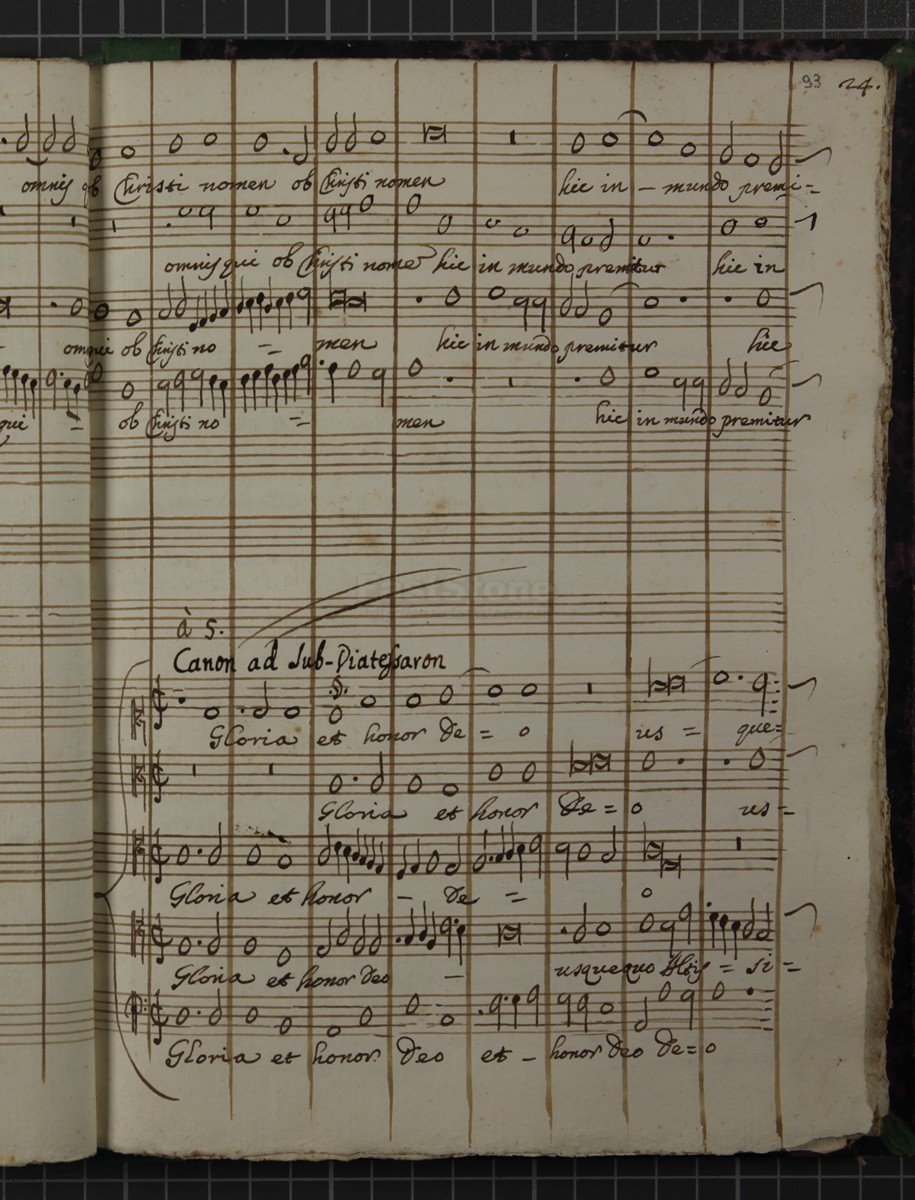 93 24.
omnis ob Christi nomen ob Christi nomen hic in – mundo premi=
omnis qui ob Christi nome hic in mundo premitur hic in
omnqui ob Christi no = men hic in mundo premitur hic
qui = ob Christi no = men hic in mundo premitur
à 5.
Canon ad Sub-Diatessaron
Gloria et honor De = o us = que=
Gloria et honor De = o us =
Gloria et honor – De = o
Gloria et honor Deo – usquequo Altis = si =
Gloria et honor Deo et – honor Deo De= o